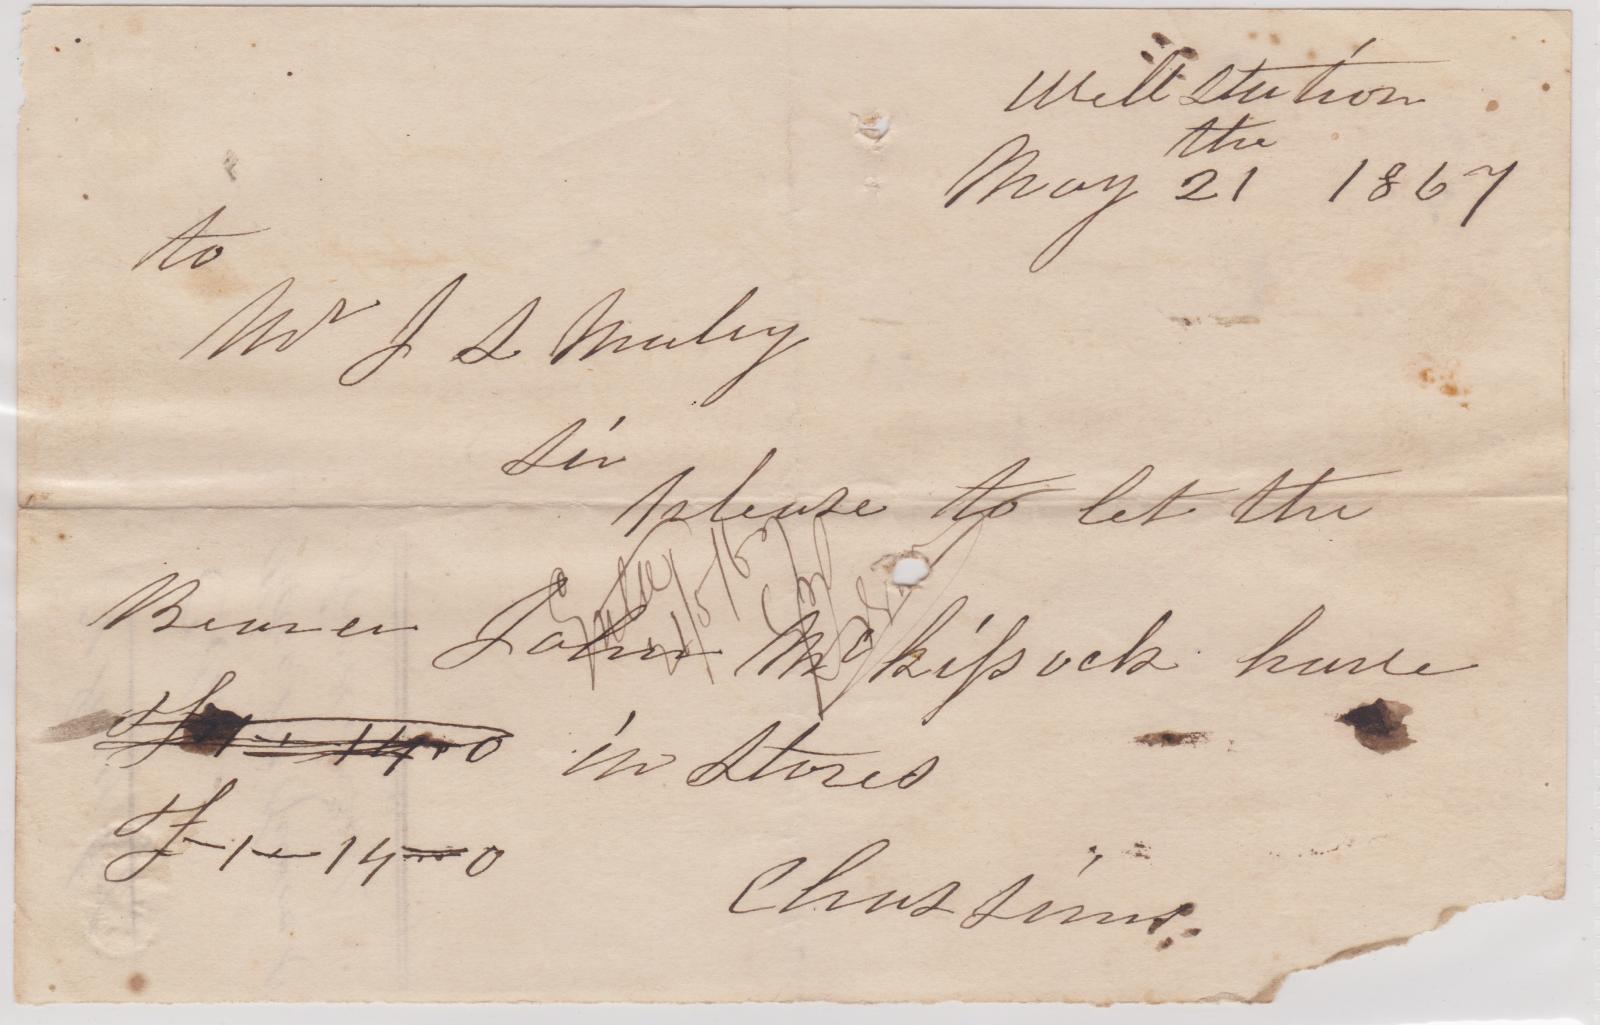 Well Station
the
May 21 1867
to
Mr J S Maley
Sir
please to let the
Bearer John McKissock have
£ 1 - 14 - 0 in Stores
£ - 1 - 14 - 0
Chas Sims